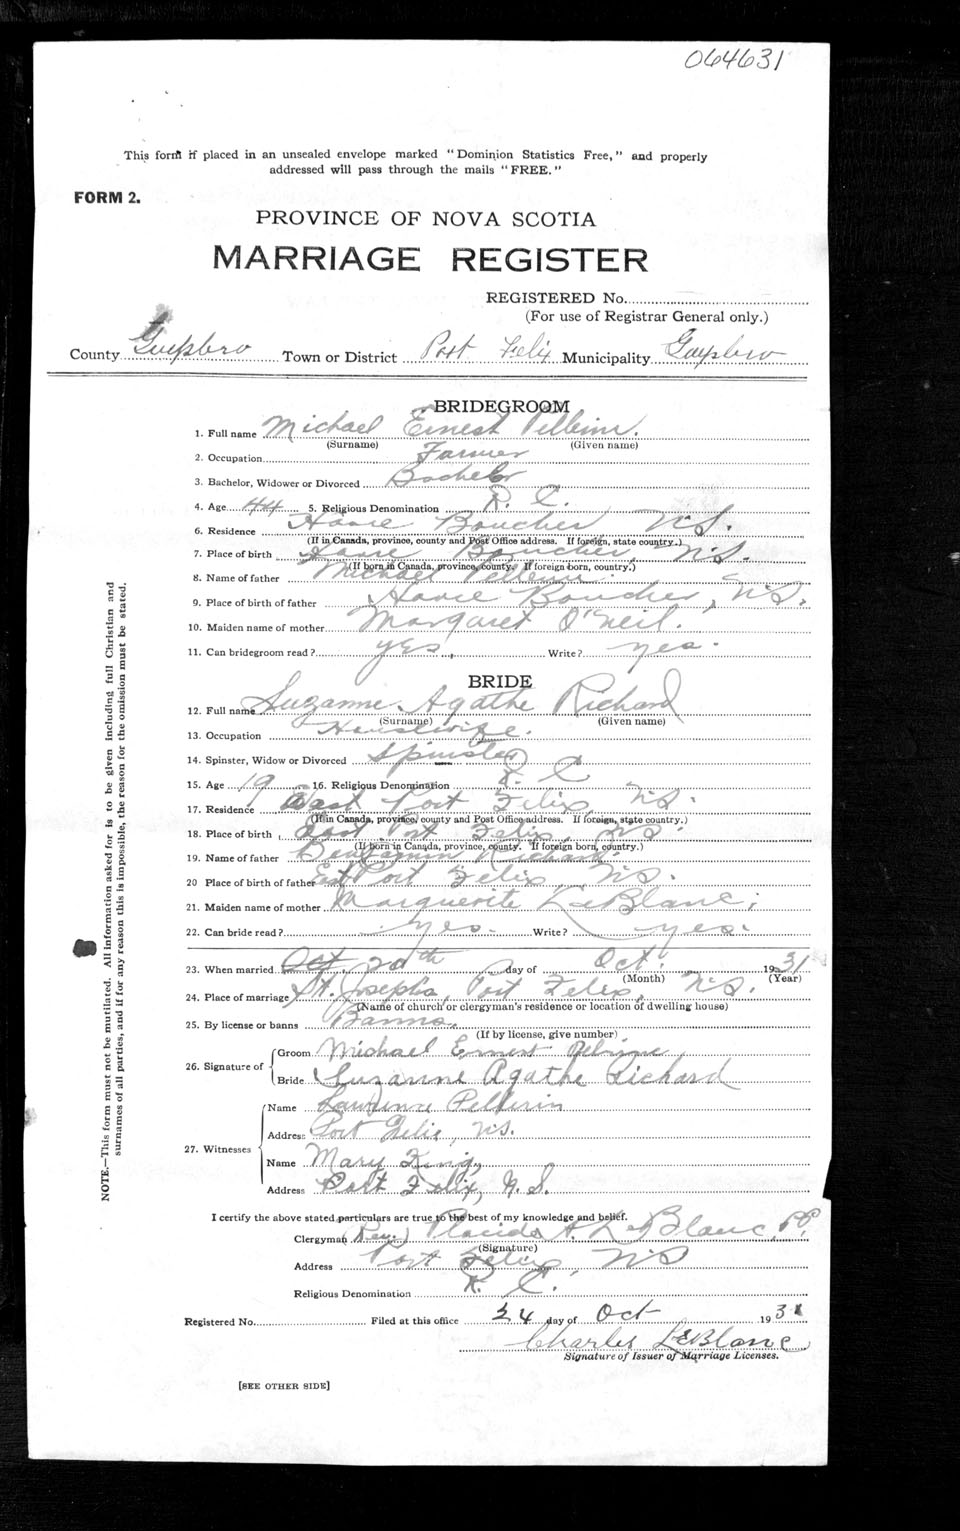 064631
This form if placed in an unsealed envelope marked "Dominion Statistics Free," and properly
addressed will pass through the mails "FREE."
FORM 2.
PROVINCE OF NOVA SCOTIA
MARRIAGE REGISTER
REGISTERED No.
(For use of Registrar General only.)
County Guysboro Town or District Port Felix Municipality Guysboro
BRIDEGROOM
1. Full name Michael Ernest Pellerin.
(Surname) (Given name)
2. Occupation Farmer
3. Bachelor, Widower or Divorced Bachelor
4. Age 44 5. Religious Denomination R. C.
6. Residence Havre Boucher N.S.
(If in Canada, province, county and Post Office address. If foreign, state country.)
7. Place of birth Havre Boucher, N.S.
(If born in Canada, province, county. If foreign born, country.)
8. Name of father Michael Pellerin.
9. Place of birth of father Havre Boucher, N.S.
10. Maiden name of mother Margaret O'Neil.
11. Can bridegroom read? yes, Write? yes.
BRIDE
12. Full name Suzanne Agathe Richard
(Surname) (Given name)
13. Occupation Housewife.
14. Spinster, Widow or Divorced Spinster
15. Age 19 16. Religious Denomination R. C
17. Residence East Port Felix, N.S.
(If in Canada, province, county and Post Office address. If foreign, state country.)
18. Place of birth East Port Felix, N.S.
(If born in Canada, province, county. If foreign born, country.)
19. Name of father Benjamin Richard.
20 Place of birth of father East Port Felix, N.S.
21. Maiden name of mother Marguerite LeBlanc;
22. Can bride read? Yes. Write? yes.
23. When married Oct 20th day of Oct. 1931
(Month) (Year)
24. Place of marriage St. Josephs, Port Felix, N.S.
(Name of church or clergyman's residence or location of dwelling house)
25. By license or banns Banns.
(If by license, give number)
26. Signature of
Groom Michael Ernest Pelrine
Bride Suzanne Agathe Richard
27. Witnesses
Name Lawrence Pellerin
Address Port Felix, N.S.
Name Mary King,
Address Port Felix, N.S.
I certify the above stated particulars are true to the best of my knowledge and belief.
Clergyman (Rev.) Placide A. LeBlanc, P.P.
(Signature)
Address Port Felix, N.S
Religious Denomination R. C.
Registered No. Filed at this office 24 day of Oct 1931
Charles LeBlanc
Signature of Issuer of Marriage Licenses.
[SEE OTHER SIDE]
NOTE.—This form must not be mutilated. All information asked for is to be given including full Christian and
surnames of all parties, and if for any reason this is impossible, the reason for the omission must be stated.